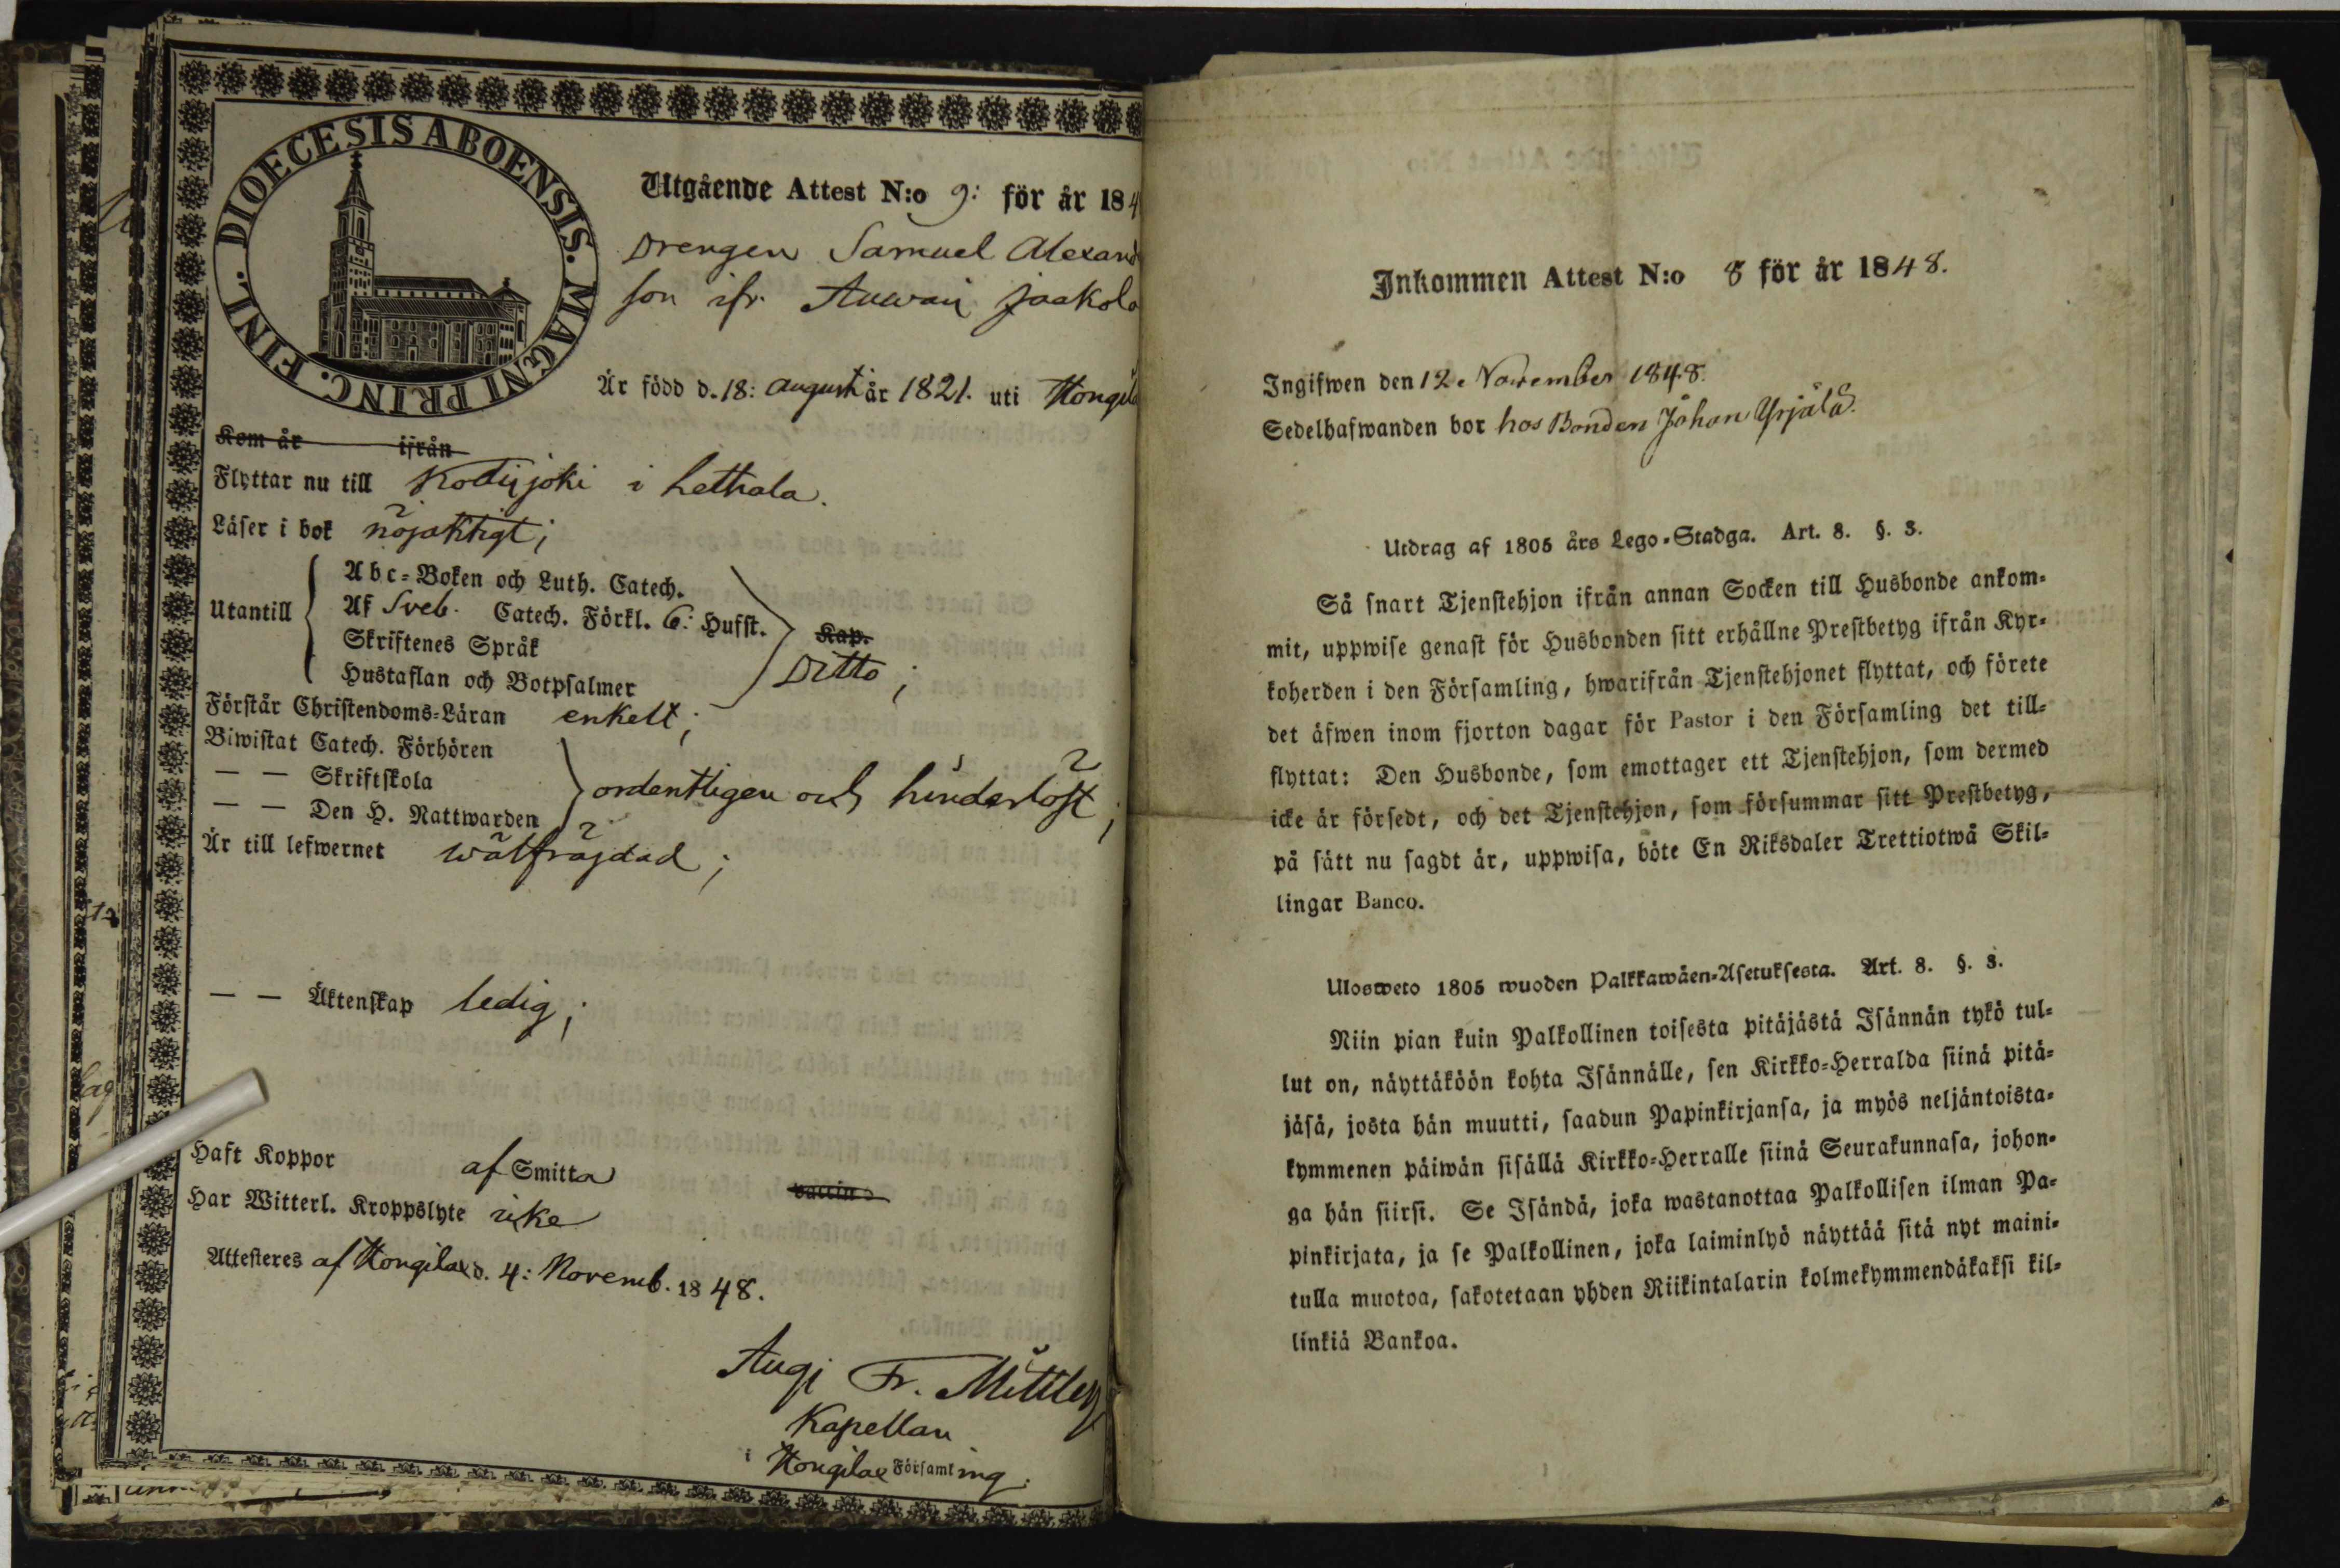 DIOECESIS ABOENSIS. MAGNI PRINC. FINL.
Utgående Attest N:o 9: för år 184
Drengen Samuel Alexand
son ifr. Auwais Jaakola
Är född d. 18: augusti år 1821. uti Kongil
Kom år ifrån
Flyttar nu till Kodisjoki i Letthala.
Läser i bok nöjaktigt;
Utantill
Abc-Boken och Luth. Catech.
Af Sveb. Catech. Förkl. 6: Hufst.
Skriftenes Språk
Hustaflan och Botpsalmer
Kap.
Ditto;
Förstår Christendoms-Läran enkelt;
Biwistat Catech. Förhören
— — Skriftskola
— — Den H. Nattwarden
ordentligen och hinderlöst;
Är till lefwernet wälfräjdad;
— — Äktenskap ledig;
Haft Koppor af Smitta vaccin
Har Witterl. Kroppslyte icke
Attesteres af Kongilax d. 4: Novemb. 1848.
Aug: Fr. Mittler
Kapellan
i Kongilax Församling.
Inkommen Attest N:o 8 för år 1848.
Ingifwen den 12. November 1848.
Sedelhafwanden bor hos Bonden Johan Yrjälä.
Utdrag af 1805 års Lego-Stadga. Art. 8. §. 3.
Så snart Tjenstehjon ifrån annan Socken till Husbonde ankom-
mit, uppwise genast för Husbonden sitt erhållne Prestbetyg ifrån Kyr-
koherden i den Församling, hwarifrån Tjenstehjonet flyttat, och förete
det äfwen inom fjorton dagar för Pastor i den Församling det till-
flyttat: Den Husbonde, som emottager ett Tjenstehjon, som dermed
icke är försedt, och det Tjenstehjon, som försummar sitt Prestbetyg,
på sätt nu sagdt är, uppwisa, böte En Riksdaler Trettiotwå Skil-
lingar Banco.
Ulosweto 1805 wuoden Palkkawäen-Asetuksesta. Art. 8. §. 3.
Niin pian kuin Palkollinen toisesta pitäjästä Isännän tykö tul-
lut on, näyttäköön kohta Isännälle, sen Kirkko-Herralda siinä pitä-
jäsä, josta hän muutti, saadun Papinkirjansa, ja myös neljäntoista-
kymmenen päiwän sisällä Kirkko-Herralle siinä Seurakunnasa, johon-
ga hän siirsi. Se Isändä, joka wastanottaa Palkollisen ilman Pa-
pinkirjata, ja se Palkollinen, joka laiminlyö näyttää sitä nyt maini-
tulla muotoa, sakotetaan yhden Riikintalarin kolmekymmendäkaksi kil-
linkiä Bankoa.